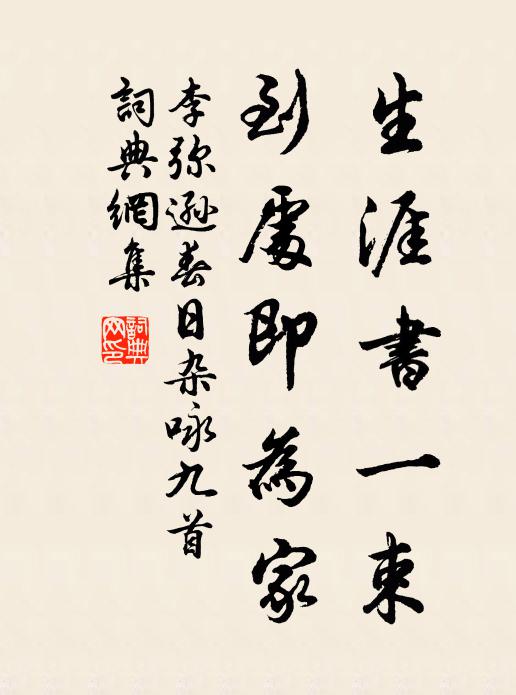 生涯書一束
到處即為家
李弥遜春日杂咏九首
詞典網集
詞典网印